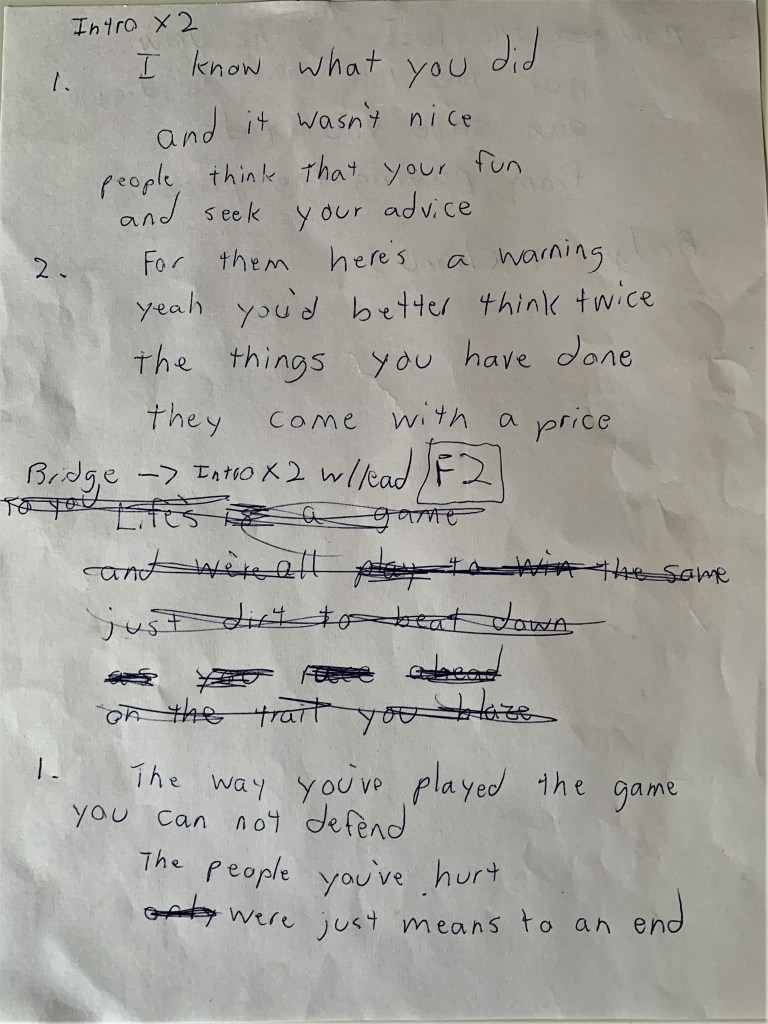 Intro x 2
1. I know what you did
and it wasn't nice
people think that your fun
and seek your advice
2. For them here's a warning
yeah you'd better think twice
the things you have done
they come with a price
Bridge -> Intro x 2 w/lead F2
To you Life's is a game
and we're all play to win the same
just dirt to beat down
as you race ahead
on the trail you blaze
1. The way you've played the game
you can not defend
The people you've hurt
only were just means to an end